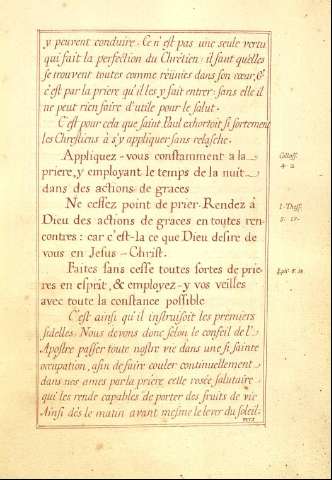 y peuvent conduire. Ce n'est pas une seule vertu
qui fait la perfection du Chrétien: il faut qu'elles
se trouvent toutes comme réünies dans son cœur, &
c'est par la priere qu'il les y fait entrer: sans elle il
ne peut rien faire d'utile pour le salut.
C'est pour cela que saint Paul exhortoit si fortement
les Chrestiens à s'y appliquer sans relasche.
Appliquez-vous constamment a la
priere, y employant le temps de la nuit
dans des actions de graces
Coloss.
4. 2
Ne cessez point de prier. Rendez à
Dieu des actions de graces en toutes ren-
contres: car c'est-la ce que Dieu desire de
vous en Jesus-Christ.
1. Thess.
5.
Faites sans cesse toutes sortes de prie-
res en esprit, & employez-y vos veilles
avec toute la constance possible
Eph. 6. 18
C'est ainsi qu'il instruisoit les premiers
fidelles. Nous devons donc selon le conseil de l'
Apostre passer toute nostre vie dans une si sainte
occupation, afin de faire couler continuellement
dans nos ames par la priere cette rosée salutaire
qui les rende capables de porter des fruits de vie
Ainsi dès le matin avant mesme le lever du soleil.